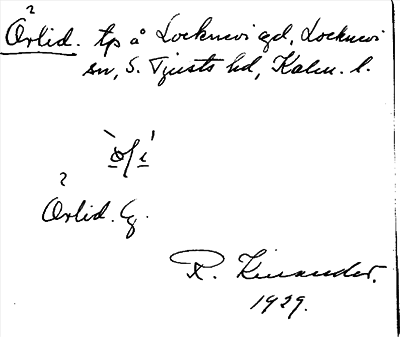 ?
Örlid. tp å Locknevi gd, Locknevi
sn, S. Tjusts hd, Kalm. l.
?
Örlid. Eg.
R. Kinander.
1929.